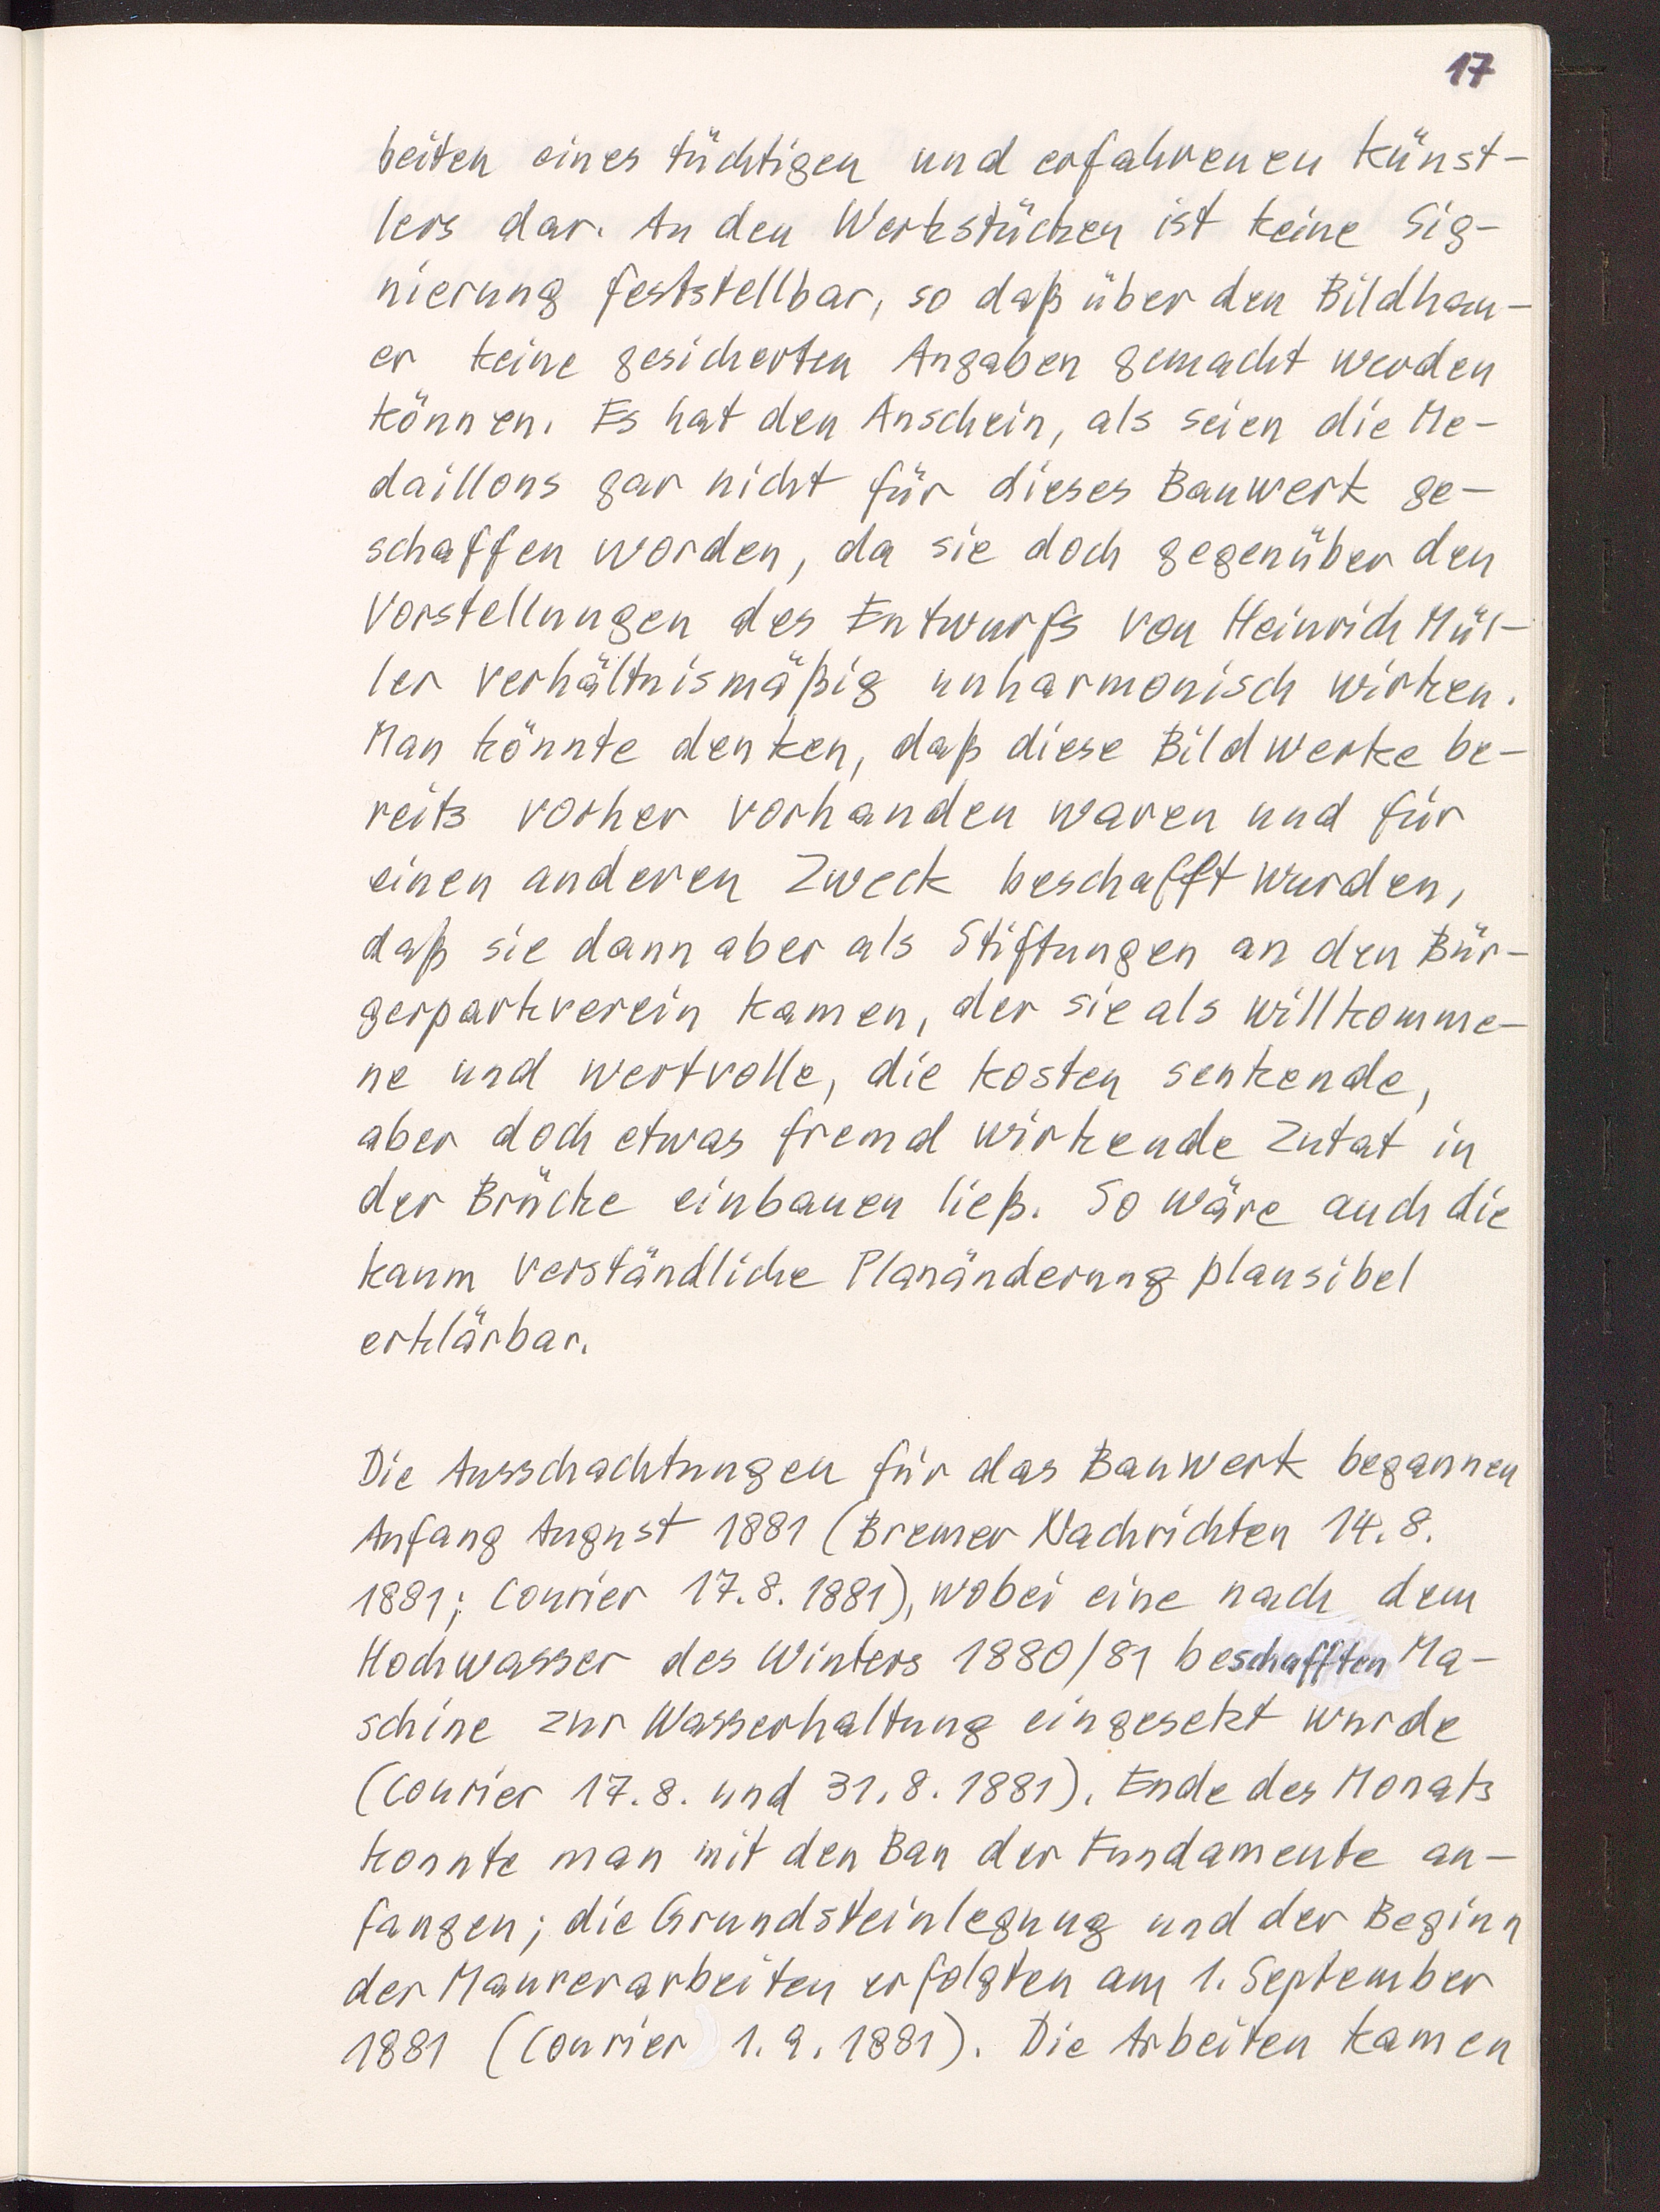 17
beiten eines tüchtigen und erfahrenen Künst-
lers dar. An den Werkstücken ist keine Sig-
nierung feststellbar, so daß über den Bildhau-
er keine gesicherten Angaben gemacht werden
können. Es hat den Anschein, als seien die Me-
daillons gar nicht für dieses Bauwerk ge-
schaffen worden, da sie doch gegenüber den
Vorstellungen des Entwurfs von Heinrich Mül-
ler verhältnismäßig unharmonisch wirken.
Man könnte denken, daß diese Bildwerke be-
reits vorher vorhanden waren und für
einen anderen Zweck beschafft wurden,
daß sie dann aber als Stiftungen an den Bür-
gerparkverein kamen, der sie als willkomme-
ne und wertvolle, die Kosten senkende,
aber doch etwas fremd wirkende Zutat in
der Brücke einbauen ließ. So wäre auch die
kaum verständliche Planänderung plausibel
erklärbar.
Die Ausschachtungen für das Bauwerk begannen
Anfang August 1881 (Bremer Nachrichten 14.8.
1881; Courier 17.8.1881), wobei eine nach dem
Hochwasser des Winters 1880/81 beschafften Ma-
schine zur Wasserhaltung eingesetzt wurde
(Courier 17.8. und 31.8.1881). Ende des Monats
konnte man mit den Bau der Fundamente an-
fangen; die Grundsteinlegung und der Beginn
der Maurerarbeiten erfolgten am 1. September
1881 (Courier 1.9.1881). Die Arbeiten kamen